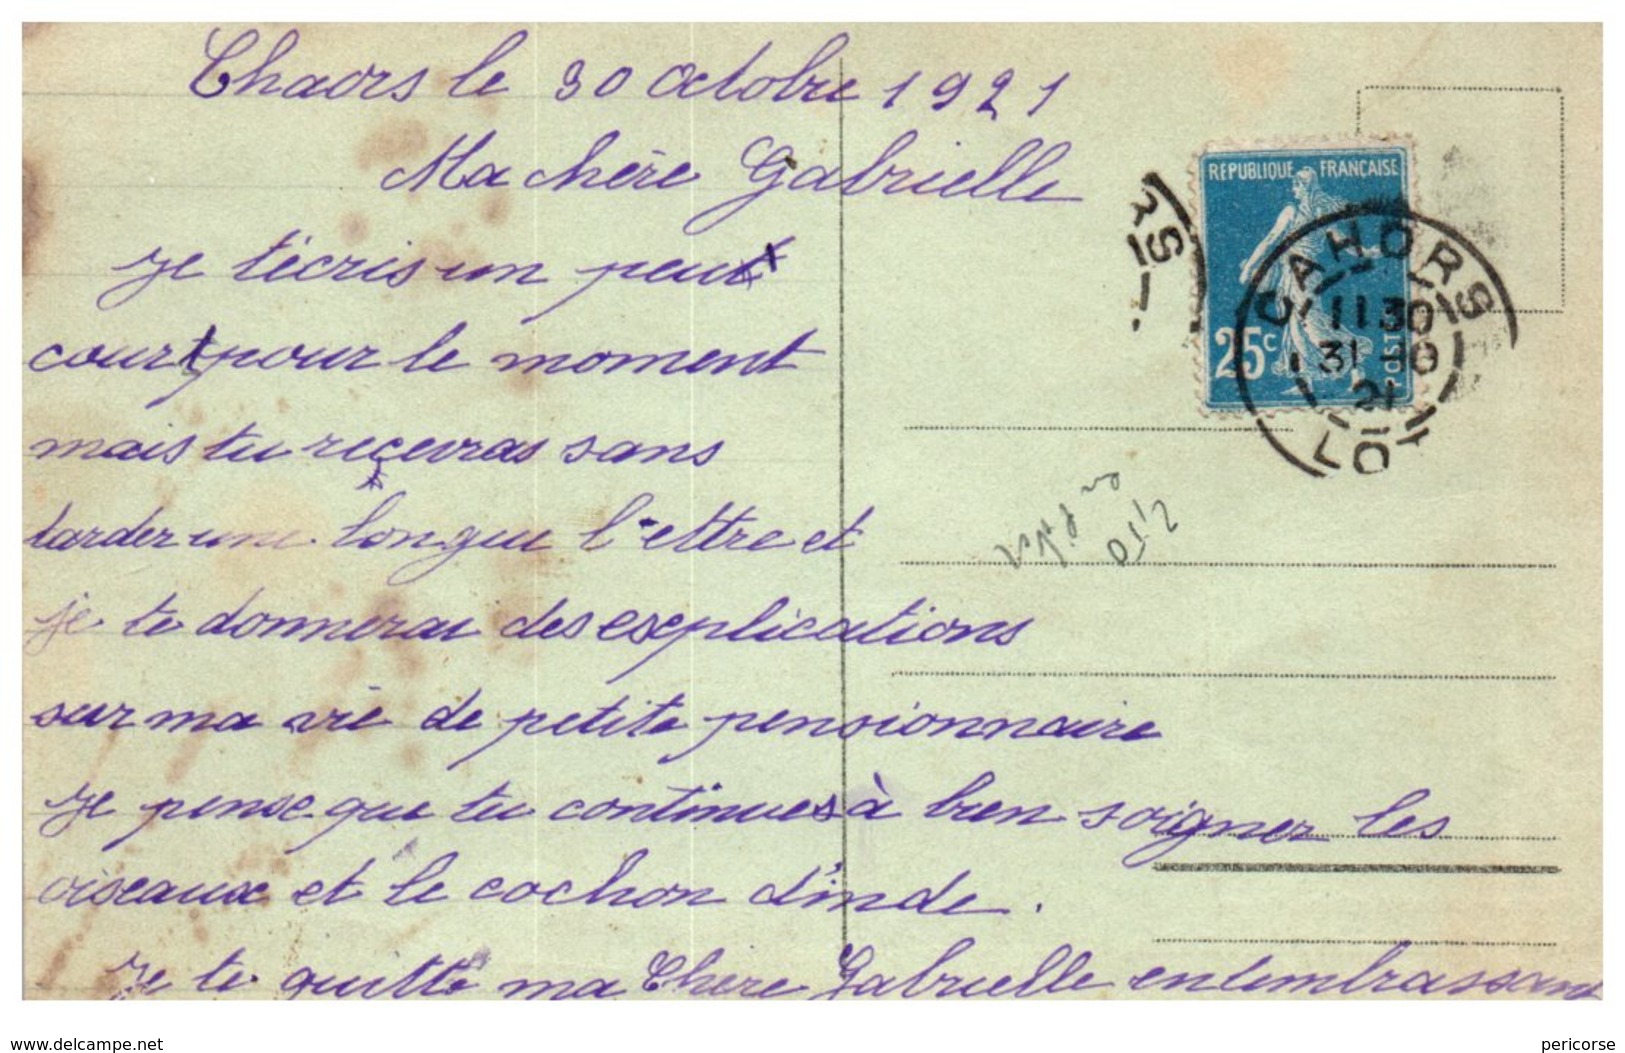 Chaors le 30 octobre 1921
Ma chère Gabrielle
je t'écris un peut
court pour le moment
mais tu reçevras sans
tarder une longue l'ettre et
je te donnerai des explications
sur ma vie de petite pensionnaire
je pense que tu continues à bien soigner les
oiseaux et le cochon d'inde.
Je te quitte ma Chère Gabrielle en t'embrassant
RÉPUBLIQUE FRANÇAISE
25c
POSTES
CAHORS
11 30
31 -10
21
LOT
RS
www.delcampe.net
pericorse